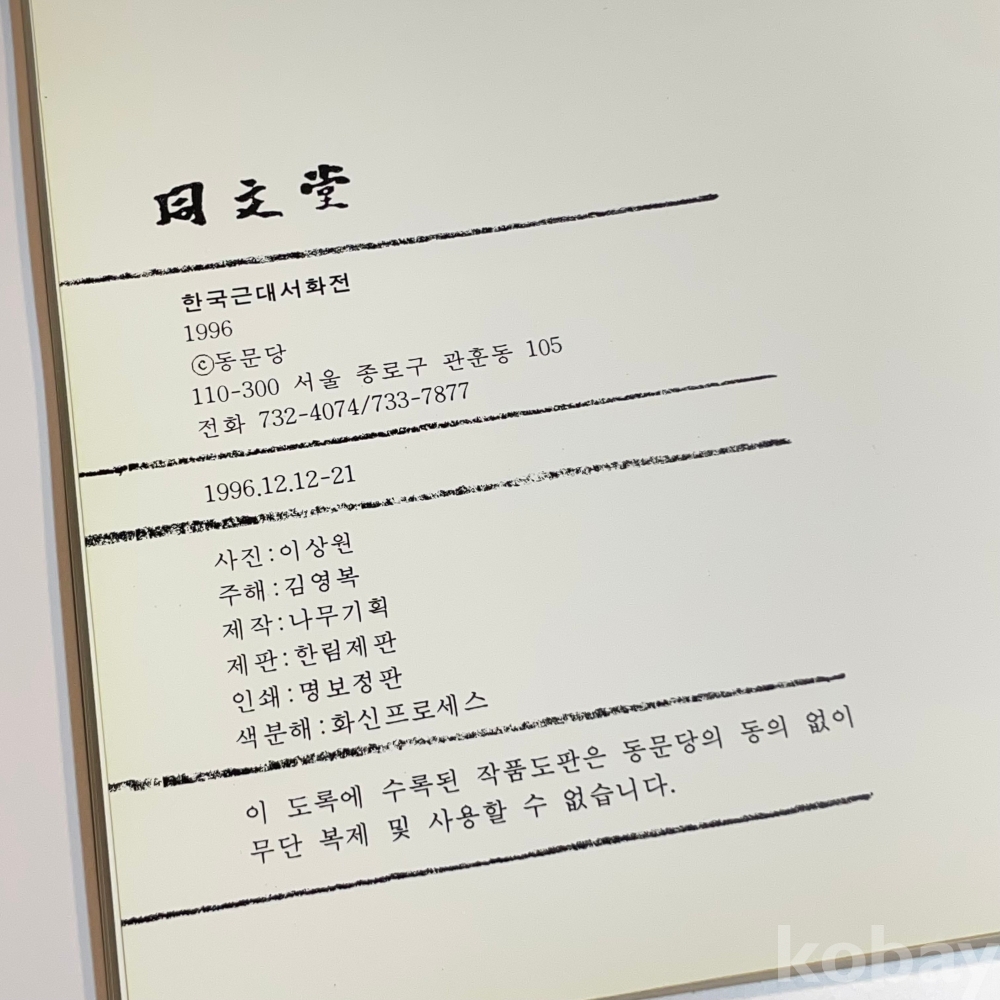 同文堂
한국근대서화전
1996
ⓒ동문당
110-300 서울 종로구 관훈동 105
전화 732-4074/733-7877
1996.12.12-21
사진:이상원
주해:김영복
제작:나무기획
제판:한림제판
인쇄:명보정판
색분해:화신프로세스
이 도록에 수록된 작품도판은 동문당의 동의 없이
무단 복제 및 사용할 수 없습니다.
kobay